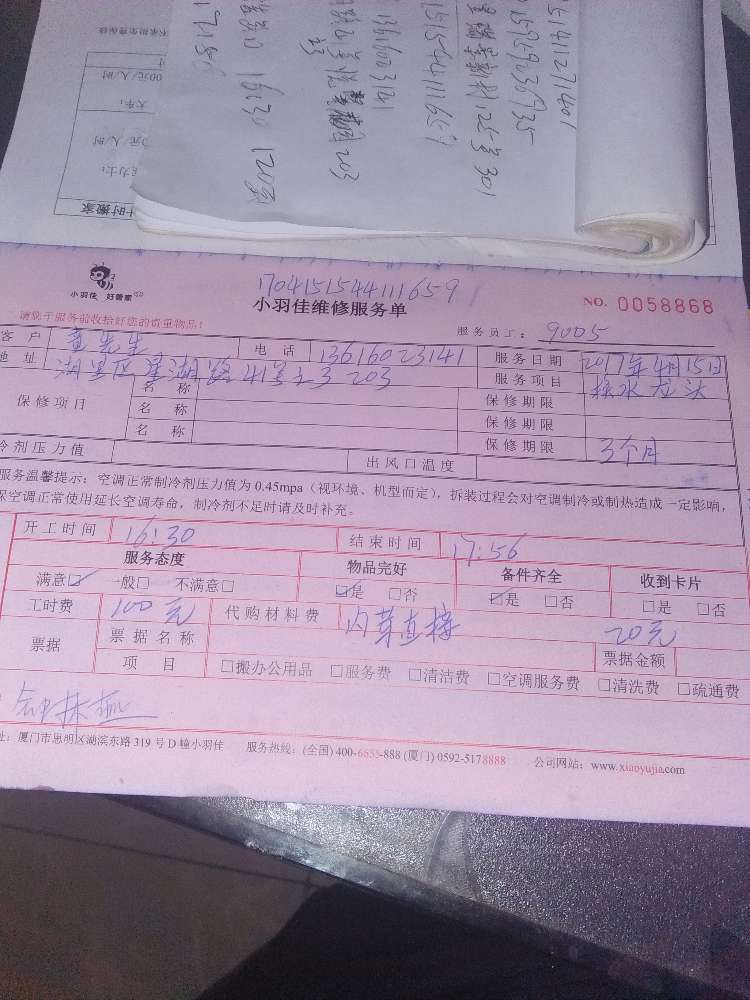 15141127401
15959236935
星湖景新村125号301
15159441116557
13616023141
203
16:30 120分
小羽佳 好管家
1704151544111659
小羽佳维修服务单
NO. 0058868
请您于服务前收拾好您的贵重物品！
服务员工：9005
客 户 电 话 13616023141 服务日期 2017年4月15日
地 址 湖里区星湖路41号之3 203 服务项目 接水龙头
保修项目 名 称 保修期限
名 称 保修期限
名 称 保修期限 3个月
冷剂压力值 出风口温度
服务温馨提示：空调正常制冷剂压力值为 0.45mpa（视环境、机型而定），拆装过程会对空调制冷或制热造成一定影响，
保空调正常使用延长空调寿命，制冷剂不足时请及时补充。
开工时间 16:30 结束时间 17:56
服务态度 物品完好 备件齐全 收到卡片
满意☑ 一般□ 不满意□ ☑是 □否 ☑是 □否 □是 □否
工时费 100元 代购材料费 内芽直接 20元
票据 票据名称 票据金额
项 目 □搬办公用品 □服务费 □清洁费 □空调服务费 □清洗费 □疏通费
址：厦门市思明区湖滨东路 319 号 D 幢小羽佳 服务热线：(全国) 400-6655-888 (厦门) 0592-5178888 公司网站：www.xiaoyujia.com